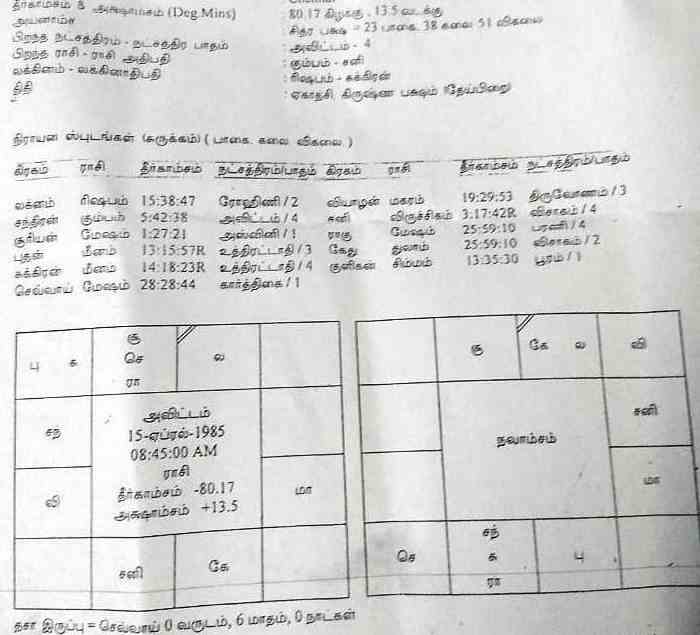 தீர்காம்சம் & அக்ஷாம்சம் (Deg.Mins) : 80.17 கிழக்கு , 13.5 வடக்கு
அயனாம்ச : சித்ர பக்ஷ = 23 பாகை. 38 கலை 51 விகலை
பிறந்த நட்சத்திரம் - நட்சத்திர பாதம் : அவிட்டம் - 4
பிறந்த ராசி - ராசி அதிபதி : கும்பம் - சனி
லக்கினம் - லக்கினாதிபதி : ரிஷபம் - சுக்கிரன்
திதி : ஏகாதசி, கிருஷ்ண பக்ஷம் (தேய்பிறை)
நிராயன ஸ்புடங்கள் (சுருக்கம்) ( பாகை. கலை விகலை. )
கிரகம் ராசி தீர்காம்சம் நட்சத்திரம்/பாதம் கிரகம் ராசி தீர்காம்சம் நட்சத்திரம்/பாதம்
லக்னம் ரிஷபம் 15:38:47 ரோஹிணி / 2 வியாழன் மகரம் 19:29:53 திருவோணம் / 3
சந்திரன் கும்பம் 5:42:38 அவிட்டம் / 4 சனி விருச்சிகம் 3:17:42R விசாகம் / 4
சூரியன் மேஷம் 1:27:21 அஸ்வினி / 1 ராகு மேஷம் 25:59:10 பரணி / 4
புதன் மீனம் 13:15:57R உத்திரட்டாதி / 3 கேது துலாம் 25:59:10 விசாகம் / 2
சுக்கிரன் மீனம் 14:18:23R உத்திரட்டாதி / 4 குளிகன் சிம்மம் 13:35:30 பூரம் / 1
செவ்வாய் மேஷம் 28:28:44 கார்த்திகை / 1
பு சு சூ செ ரா ல
சந்
வி
அவிட்டம்
15-ஏப்ரல்-1985
08:45:00 AM
ராசி
தீர்காம்சம் -80.17
அக்ஷாம்சம் +13.5
மா
சனி கே
சூ கே ல வி
நவாம்சம்
சனி
மா
செ சந் சு ரா பு
தசா இருப்பு = செவ்வாய் 0 வருடம், 6 மாதம், 0 நாட்கள்